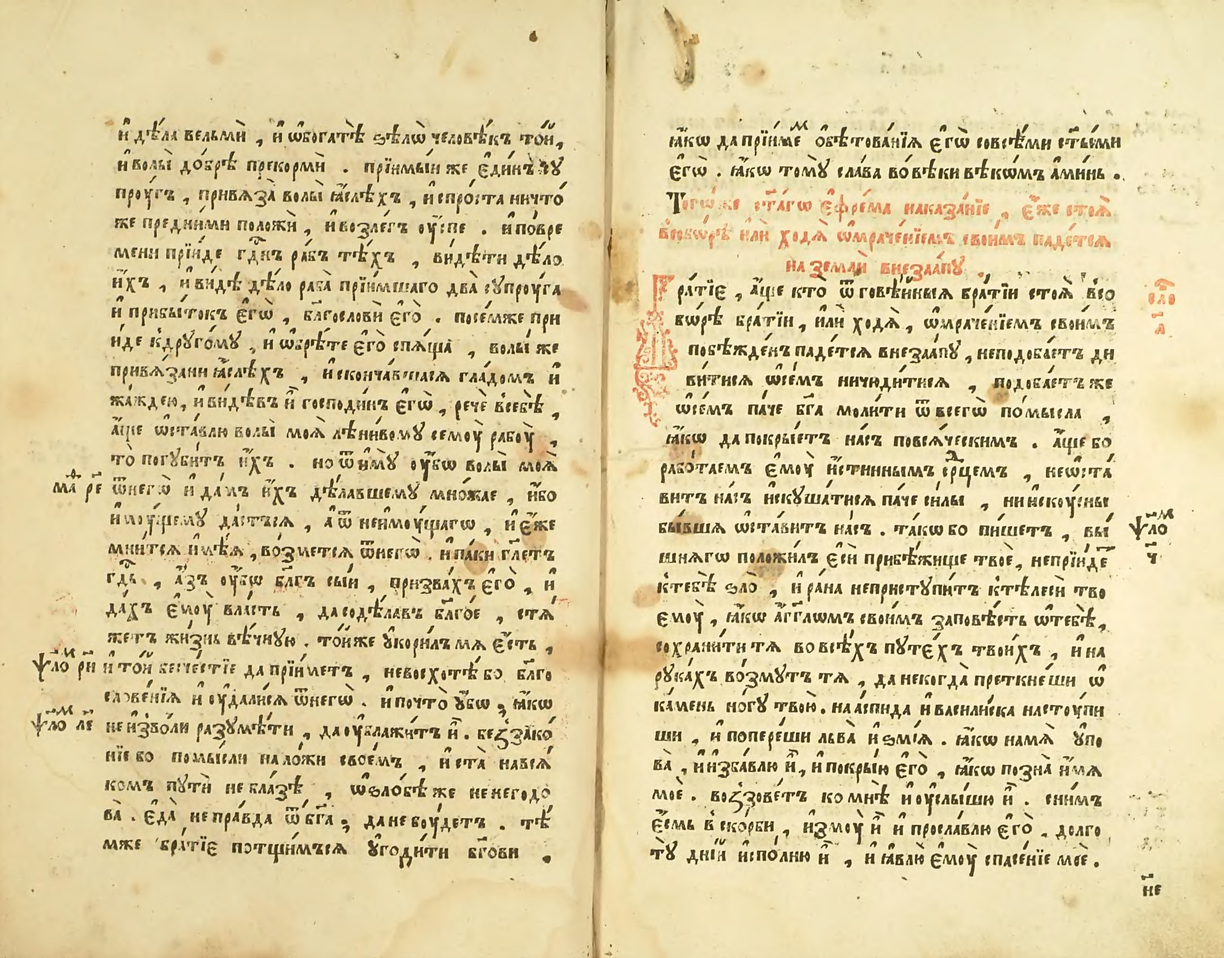 и҆ дѣ́ла вельмѝ , и҆ ѡ҆богатѣ̀ ѕѣлѡ̀ человѣ́къ то́й,
и҆ волы̀ до́брѣ прекормѝ . прїи́мыи же є҆ди́нъ
проу́гъ , привѧза̀ волы̀ ꙗ҆́слѣхъ , и҆спро́ста ничто́
же пред̾ни́ми положѝ , и҆возле́гъ оу҆́спе . и҆повре
мени прїи́де гд҇нъ ра́бъ тѣ́хъ , ви́дѣти дѣ́ло
и҆́хъ , и҆ви́дѣ дѣ́ло раба̀ прїи́мшаго два̀ супроу́га
и҆ прибы́токъ є҆гѡ̀ , бл҇гослови̂ є҆го̀ . посе́мже при
и́де к̾друго́му , и҆ ѡ҆брѣ́те є҆го̀ спѧ́ща , волы́ же
привѧ́зани ꙗ҆́слѣхъ , и҆скончавшаѧсѧ гла́домъ и҆
жа́ждею, и҆ви́дѣвъ и҆̀ господи́нъ є҆гѡ̀ , речѐ в̾себѣ̀ ,
а҆́ще ѡ҆ста́влю волы̀ моѧ̀ лѣни́вому семоу̀ рабоу̀ ,
то̀ погуби́тъ и҆́хъ . но ѿиму̀ оу҆́бѡ волы̀ моѧ̀
ма҇ ре҇ ѿнегѡ̀ и҆ да́мъ и҆́хъ дѣ́лавшему мно́жае , и҆́бо
и҆моу́щему да́стъсѧ , а҆ ѿ неимоу́щагѡ , и҆ є҆́же
мни́тсѧ и҆мѣ́ѧ , во́зметсѧ ѿнегѡ̀ . и҆па́ки гл҇етъ
гд҇ь , а҆́зъ оу҆́бѡ бл҇гъ сы́и , призва́хъ є҆го̀ , и҆
да́хъ є҆моу̀ вла́сть , да содѣ́лавъ бл҇го́е , стѧ
жетъ жи́знь вѣ́чную . то́йже укори́лъ мѧ є҆́сть ,
ѱ҇ло ри҇ и҆ то́й беще́стїе да прїи́метъ , невосхотѣ̀ бо бл҇го
слове́нїѧ и҆ оу҆дали́сѧ ѿнегѡ̀ . и҆почто̀ у҆́бѡ , ꙗ҆́кѡ
ѱ҇ло ле҇ не и҆зво́ли разумѣ́ти , да оу҆блажи́тъ и҆̀ . беззако́
нїе бо помы́сли на ло́жи свое́мъ , и҆ ста̀ навсѧ́
комъ путѝ не бла́зѣ , ѡ҆ѕло́бѣ же ненегодо
ва̀ . є҆да̀ непра́вда ѿ бг҇а , да не боу́детъ . тѣ́
мже бра́тїе потщи́мъсѧ у҆годи́ти бг҇ови .
ꙗ҆́кѡ да прїи́мем҇ ѡ҆бѣтова́нїѧ є҆гѡ̀ совсѣ́ми ст҇ы́ми
є҆гѡ̀ . ꙗ҆́кѡ тому̀ сла́ва во вѣ́ки вѣкѡ́мъ а҆ми́нь .
Тогѡ́же ст҇а́гѡ є҆фре́ма наказа́нїе , є҆́же стоѧ̀
всобо́рѣ и҆лѝ ходѧ̀ ѡ҆мраче́нїемъ свои́мъ паде́тсѧ
на землѝ внеза́апу .
Бра́тїе , а҆́ще кто̀ ѿ говѣ́йныѧ бра́тїи стоѧ̀ в̾со
бо́рѣ бра́тїи, и҆лѝ ходѧ̀ , ѡ҆мраче́нїемъ свои́мъ
побѣжде́нъ паде́тсѧ внеза́апу , неподоба́етъ ди
ви́тисѧ ѡ҆се́мъ ничюди́тисѧ , подоба́етъ же
ѡ҆се́мъ па́че бг҇а моли́ти ѿ всегѡ̀ по́мысла ,
ꙗ҆́кѡ да покры́етъ на́съ повсѧ́ческимъ . а҆́ще бо
рабо́таемъ є҆моу̀ и҆́стиннымъ ср҇цемъ , неѡ҆ста́
витъ на́съ и҆скуша́тисѧ па́че си́лы , ни и҆скоу́сны
бы́вшѧ ѡ҆ста́витъ на́съ . та́кѡ бо пи́шетъ , вы́
ѱ҇ло ч҇
шнѧгѡ положи́лъ є҆сѝ прибѣ́жище твоѐ , непрїи́де҇
к̾тебѣ̀ ѕло̀ , и҆ ра́на непристу́питъ к̾тѣлесѝ тво
є҆моу̀ , ꙗ҆́кѡ а҆́гг҇лѡмъ свои́мъ заповѣ́сть ѡ҆тебѣ̀ ,
сохрани́ти тѧ во всѣ́хъ путе́хъ твои́хъ , и҆ на
рука́хъ во́змутъ тѧ , да некогда̀ преткне́ши ѡ҆
ка́мень но́гу твою̀ . на а҆́спида и҆ васили́ска насту́пи
ши , и҆ попере́ши льва̀ и҆ ѕмїѧ . ꙗ҆́кѡ намѧ̀ у҆по
ва̀ , и҆ и҆зба́влю и҆̀ , и҆ покры́ю є҆го̀ , ꙗ҆́кѡ позна̀ и҆́мѧ
моѐ . воззове́тъ ко мнѣ̀ и҆ оу҆слы́шю и҆̀ . сни́мъ
є҆́смь в ско́рби , и҆змоу̀ и҆̀ и҆ просла́влю є҆го̀ . долго
ту̀ дні́й и҆спо́лню и҆̀ , и҆ ꙗ҆влю̀ є҆моу̀ спасе́нїе моѐ .
не҇